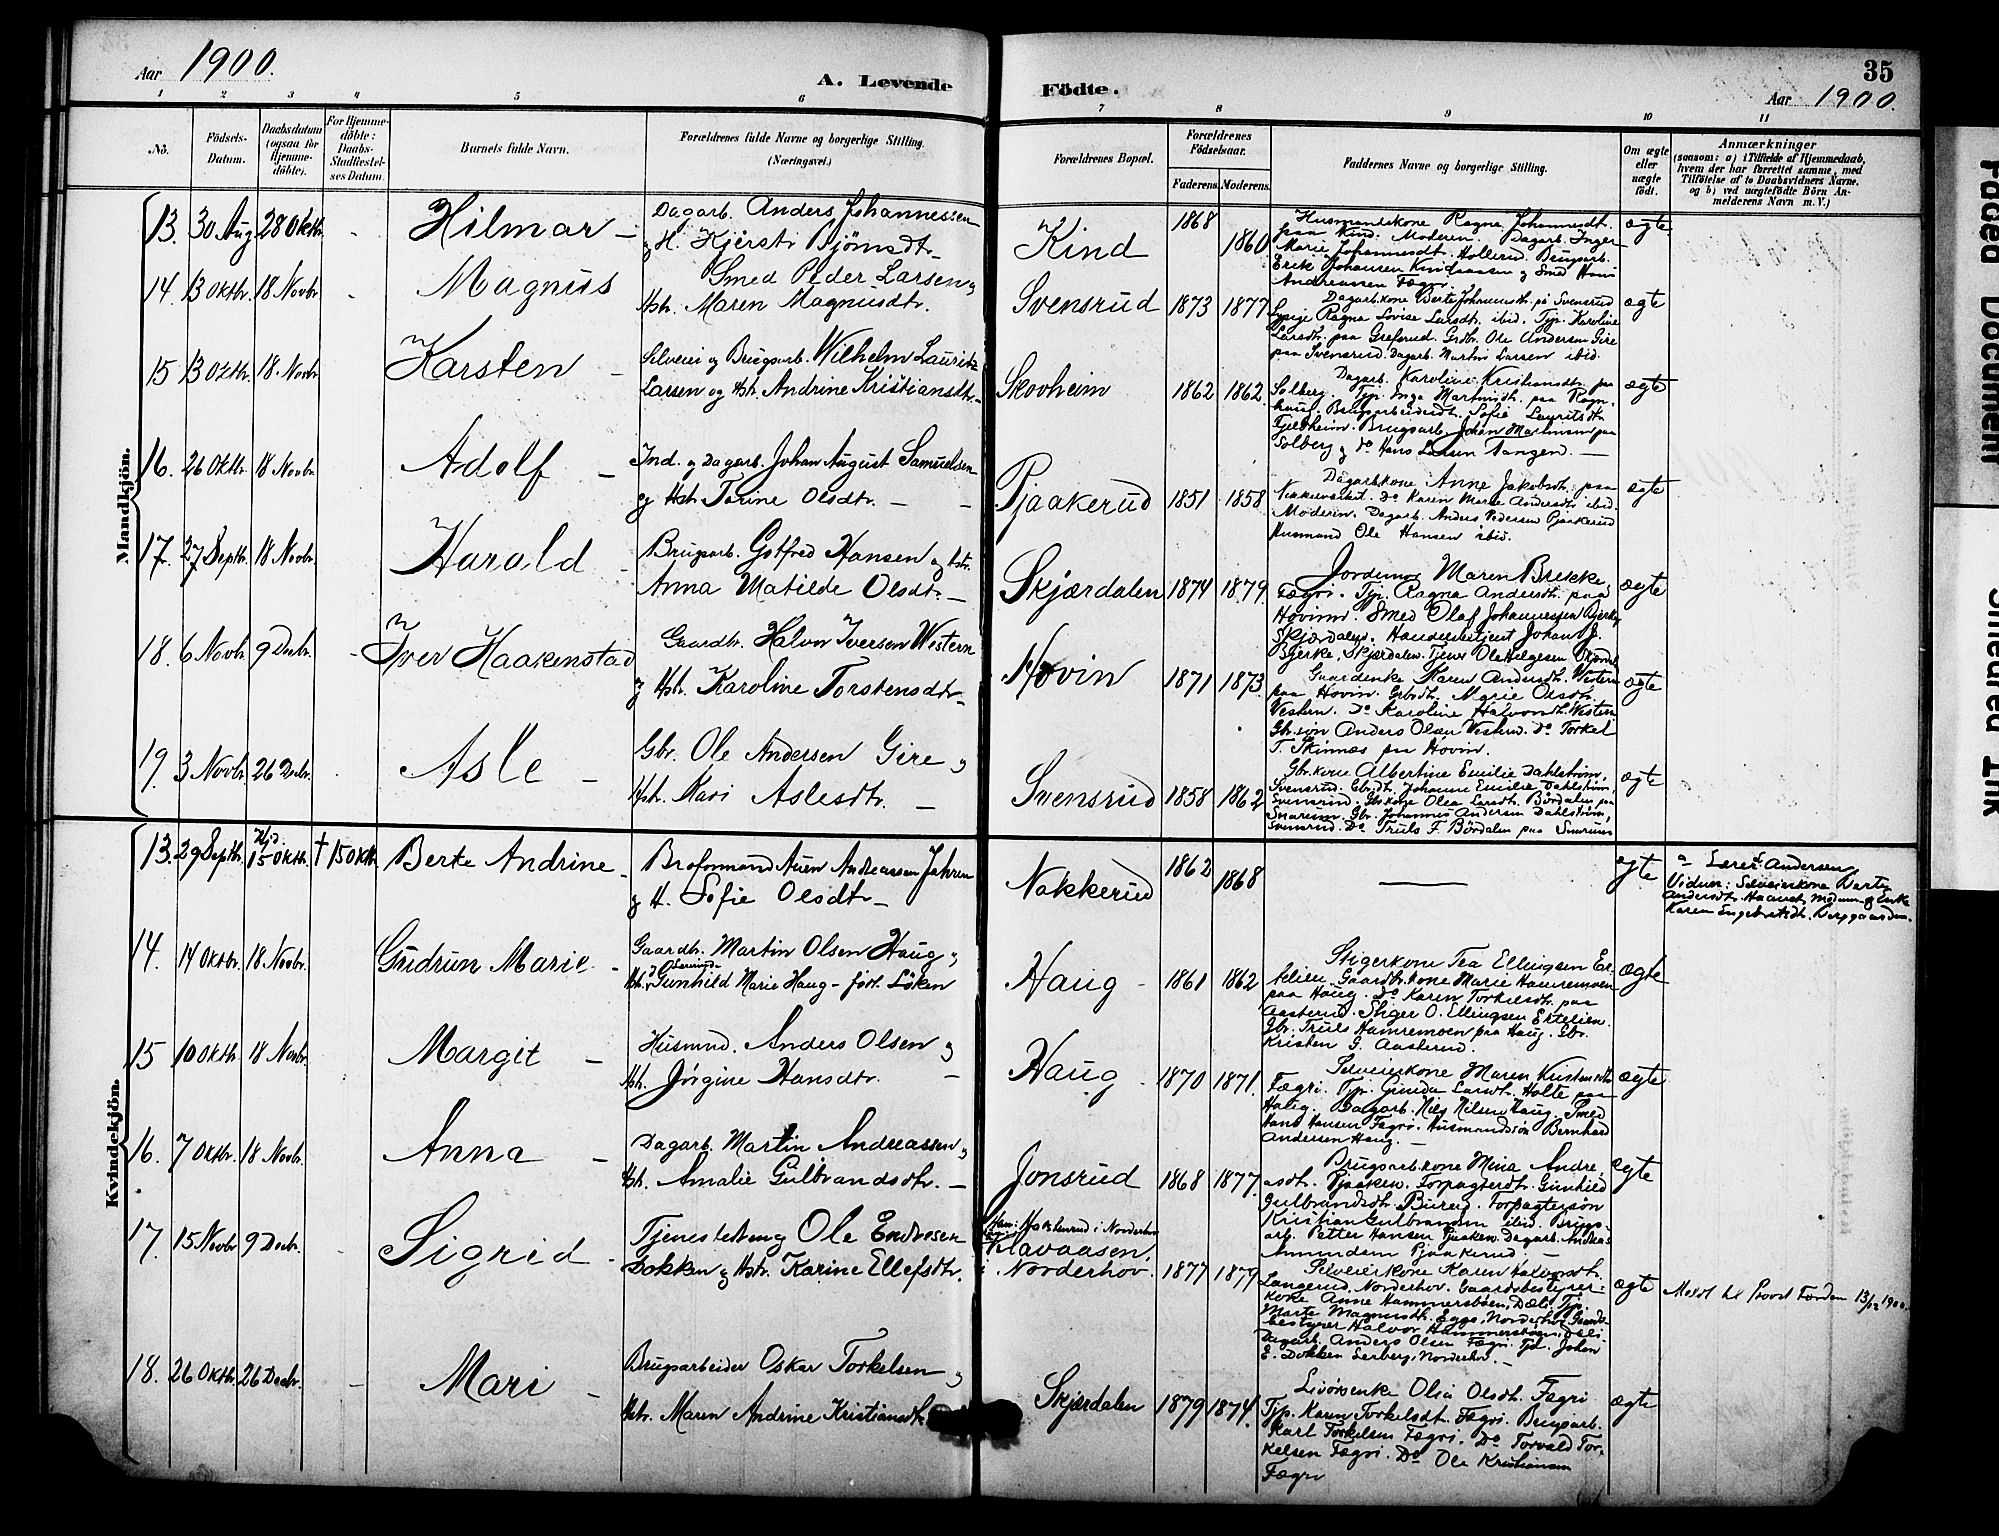 Aar 1900.
A. Levende
Födte.
35
Aar 1900.
1 2 3 4 5 6 7 8 9 10 11
No.
Födsels-
Datum.
Daabsdatum
(ogsaa for
Hjemme-
döbte).
For Hjemme-
döbte:
Daabs-
Stadfæstel-
ses Datum.
Barnets fulde Navn.
Forældrenes fulde Navne og borgerlige Stilling.
(Næringsvei.)
Forældrenes Bopæl.
Forældrenes
Födselsaar.
Faderens. Moderens.
Faddernes Navne og borgerlige Stilling.
Om ægte
eller
uægte
födt.
Anmærkninger
(saasom: a) i Tilfælde af Hjemmedaab,
hvem der har forrettet samme, med
Tilföielse af to Daabsvidners Navne,
og b) ved uægtefödte Börn An-
melderens Navn m. V.)
Mandkjön.
13. 30 Aug. 28 Oktbr. - Hilmar -
Dagarb. Anders Johannessen
og H. Kjersti Björnsdtr.
Kind 1868 1860
Husmandskone Ragna Johannesdt.
paa Kind. Moderen. Dagarb. Inger
Marie Johannesdt. Hollerud. Brugsarb.
Erik Johansen Kindsaasen og Smed Hans
Andreassen Fægri.
ægte
14. 13 Oktbr. 18 Novbr. - Magnus
Smed Peder Larsen og
Hstr. Maren Magnusdtr.
Svensrud 1873 1877
Dagarb.kone Berte Johannesdtr. på Svensrud
Pige Ragna Lovise Larsdt. ibid. Tjp. Karoline
Larsdt. paa Græsrud. Grdbr. Ole Andersen Gire
paa Svensrud. Dagarb. Martin Larsen ibid.
ægte
15 13 Oktbr. 18 Novbr. Karsten -
Selveier og Brugsarb. Wilhelm Lauritz
Larsen og Hstr. Andrine Kristiansdtr.
Skovheim 1862 1862
Dagarb. Karoline Kristiansdt. paa
Solberg. Tjp. Inga Martinsdt. paa Ragn-
haug. Brugsarbeidersdt. Sofie Lauritsdt.
Fjeldheim. Brugsarb. Johan Martinsen paa
Solberg og Do Hans Larsen Tangen. -
ægte
16. 26 Oktbr. 18 Novbr. Adolf -
Ind. og Dagarb. Johan August Samuelsen
og Hstr. Torine Olsdtr. -
Pjaakerud 1851 1858
Dagarb.kone Anne Jakobsdt. paa
Do Karen Marie Andersdt. ibid.
Moderen. Dagarb. Anders Pedersen Pjaakerud
Husmand Ole Hansen ibid.
ægte
17. 27 Septbr. 18 Novbr. Harald -
Brugsarb. Gotfred Hansen og Hstr.
Anna Matilde Olsdtr. -
Skjærdalen 1874 1879.
Jordemor Maren Brekke,
Fægri. Tjp. Ragna Andersdt. paa
Hovinn. Smed Olaf Johannessen Bjerke,
Skjærdalen. Handelsbetjent Johan J.
Bjerke, Skjærdalen. Tjener Ole Helgesen
ægte
18. 6 Novbr. 9 Decbr. - Iver Haakenstad
Gaardbr. Halvor Iversen Western
og Hstr. Karoline Torstensdtr.
Hovin 1871 1873.
Gaardenke Karen Andersdt. Western
paa Hovin. Grbrdt. Marie Olsdt.
Western. Do Karoline Halvorsdt. Western
Gbr.sön Anders Olsen Western. Do Torkel
T. Skinnæs paa Hovin.
ægte
19. 3 Novbr. 26 Decbr. Asle -
Gbr. Ole Andersen Gire og
Hstr. Kari Aslesdtr. -
Svensrud 1858 1862
Gbr.kone Albertine Emilie Dahlström,
Svensrud. Gbrdt. Johanne Emilie Dahlström,
Svensrud. Gbrkone Olea Larsdt. Bördalen paa
Snarum. Gbr. Johannes Andersen Dahlström,
Svensrud. Do Truls F. Bördalen paa Snarum
ægte
Kvindekjön.
13. 29 Septbr. Hjd. 15 Oktbr. † 15 Oktbr. Berte Andrine -
Broformand Auen Andreassen Jahren
og H. Sofie Olsdtr. -
Nakkerud 1862 1868
ægte
a Lærer L. Andersen
Vidner: Selveierkone Berte
Andersdt. Haavet, Modum og Enke
Karen Engebretsdt. Berggaarden.
14. 14 Oktbr. 18 Novbr. Gudrun Marie -
Gaardbr. Martin Olsen Haug og
Hstr. Gunhild Marie Haug - födt Löken
Haug - 1861 1862
Stigerkone Tea Ellingsen Er-
telien. Gaardbr.kone Marie Hamremoen
paa Haug. Do Karen Torkelsdt. paa
Aasterud. Stiger O. Ellingsen Ertelien.
Gbr. Truls Hamremoen paa Haug. Gbr.
Kristen G. Aasterud.
ægte
15 10 Oktbr. 18 Novbr. Margit -
Husmd. Anders Olsen og
Hstr. Jörgine Hansdtr. -
Haug 1870 1871.
Selveierkone Maren Kristensdt.
Fægri. Tjp. Gunda Larsdt. Holte paa
Haug. Dagarb. Nils Nilsen Haug. Smed
Hans Hansen Fægri. Husmandssön Bernhard
Andersen Haug. -
ægte
16. 7 Oktbr. 18 Novbr. Anna -
Dagarb. Martin Andreassen og
Hstr. Amalie Gulbrandsdtr. -
Jonsrud 1868 1877.
Brugsarb.kone Mina Andre-
asdt. Pjaaken. Forpagterdt. Gunhild
Gulbrandsdt. Bureud. Forpagtersön
Kristian Gulbrandsen ibid. Brugs-
arb. Petter Hansen Pjaaken. Dagarb. Andreas
Amundsen Pjaakerud. -
ægte
17. 15 Novbr. 9 Decbr. Sigrid -
Tjenestedreng Ole Endresen
Dokken og Hstr. Karine Ellefsdtr.
i Norderhov
i Norderhov. 1877 1879
Selveierkone Karen Halvorsdt.
Langerud, Norderhov. Gaardsbestyrer-
kone Anne Hammersböen, Dæli. Tjp.
Marte Magnusdt. Egge, Norderhov. Gaards-
bestyrer Halvor Hammersbögen, Dæli
Dagarb. Anders Olsen Fægri. Tjd. Johan
E. Dokken Lerberg, Norderhov. -
ægte
Meldt til Provst Färden 13/12 1900.
18. 26 Oktbr. 26 Decbr. - Mari -
Brugsarbeider Oskar Torkelsen og
Hstr. Maren Andrine Kristiansdt.
Skjærdalen 1879 1874.
Olia Olsdt. Fægri
Tjp. Karen Torkelsdt. Fægri. Brugsarb.
Karl Torkelsen Fægri. Do Torvald Tor-
kelsen Fægri. Do Ole Kristiansen
Fægri
ægte
Faded Document
Smeared Ink